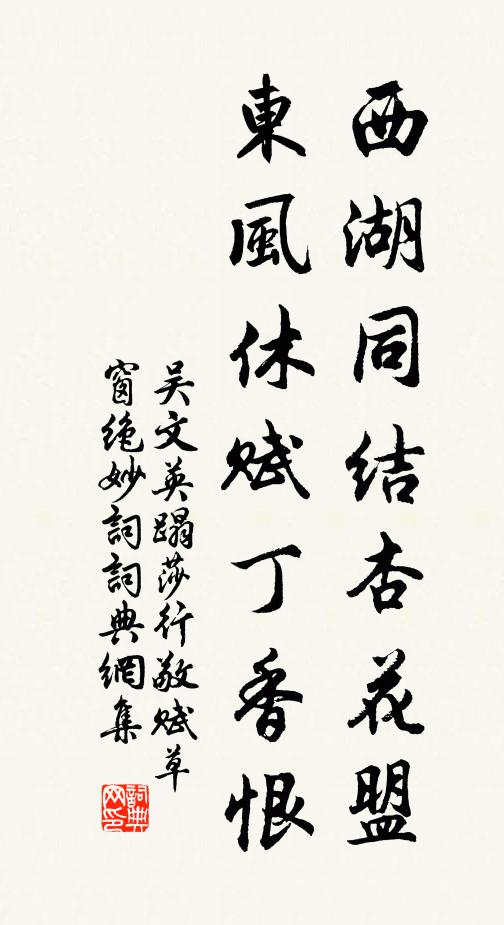 西湖同结杏花盟
東風休赋丁香恨
吴文英蹋莎行敬赋草
窗绝妙詞詞典網集
詞典
网印